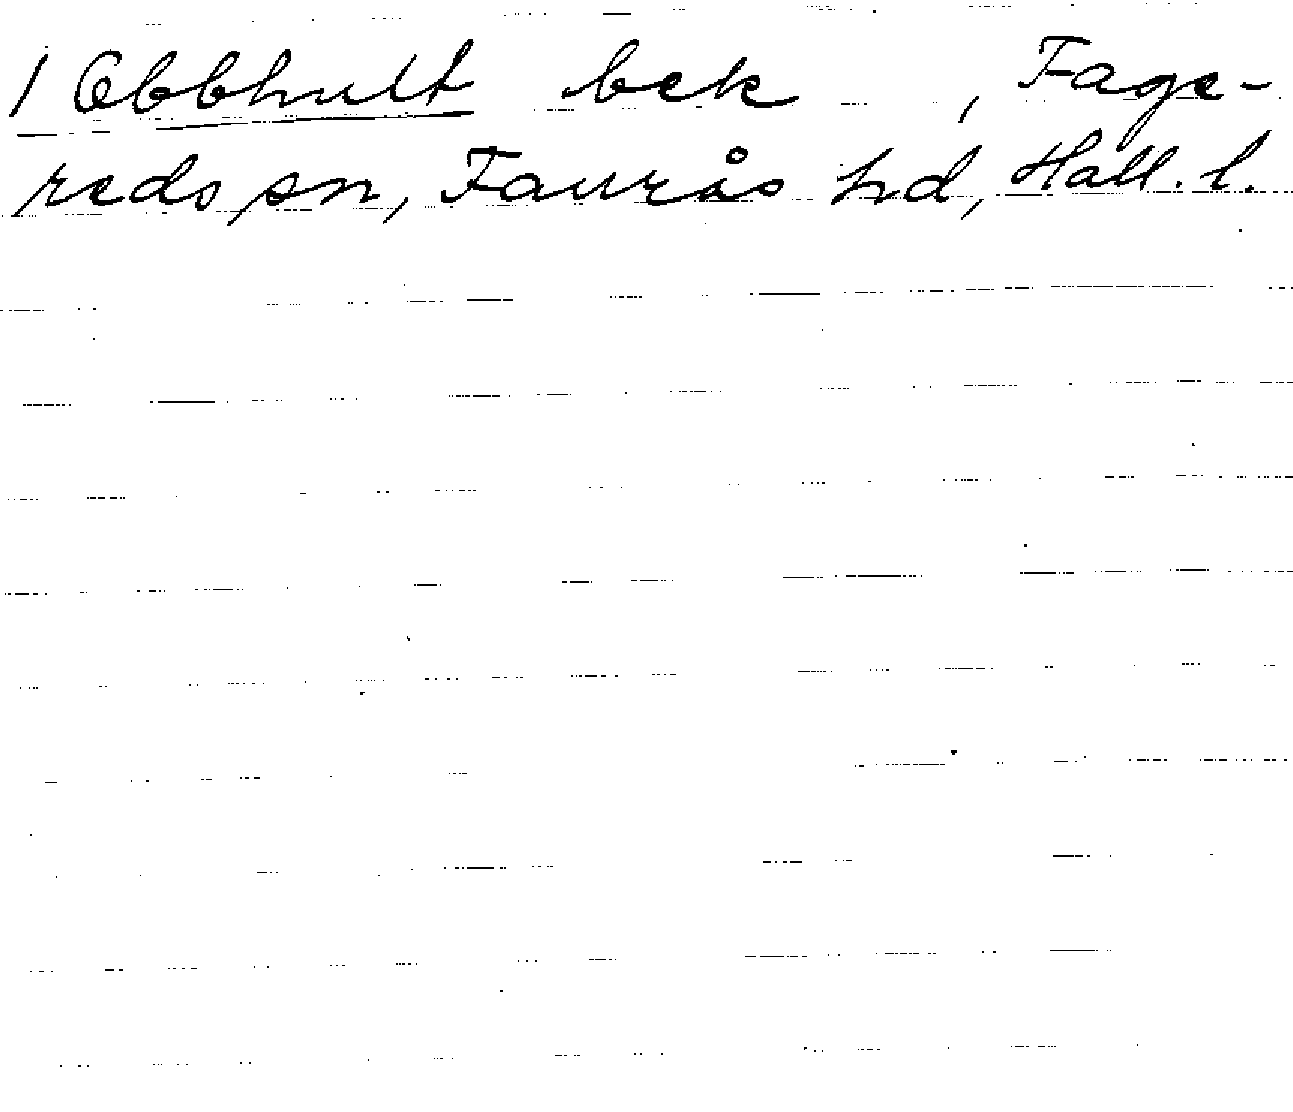 1 Obbhult bek , Fage-
reds sn, Faurås hd, Hall. l.